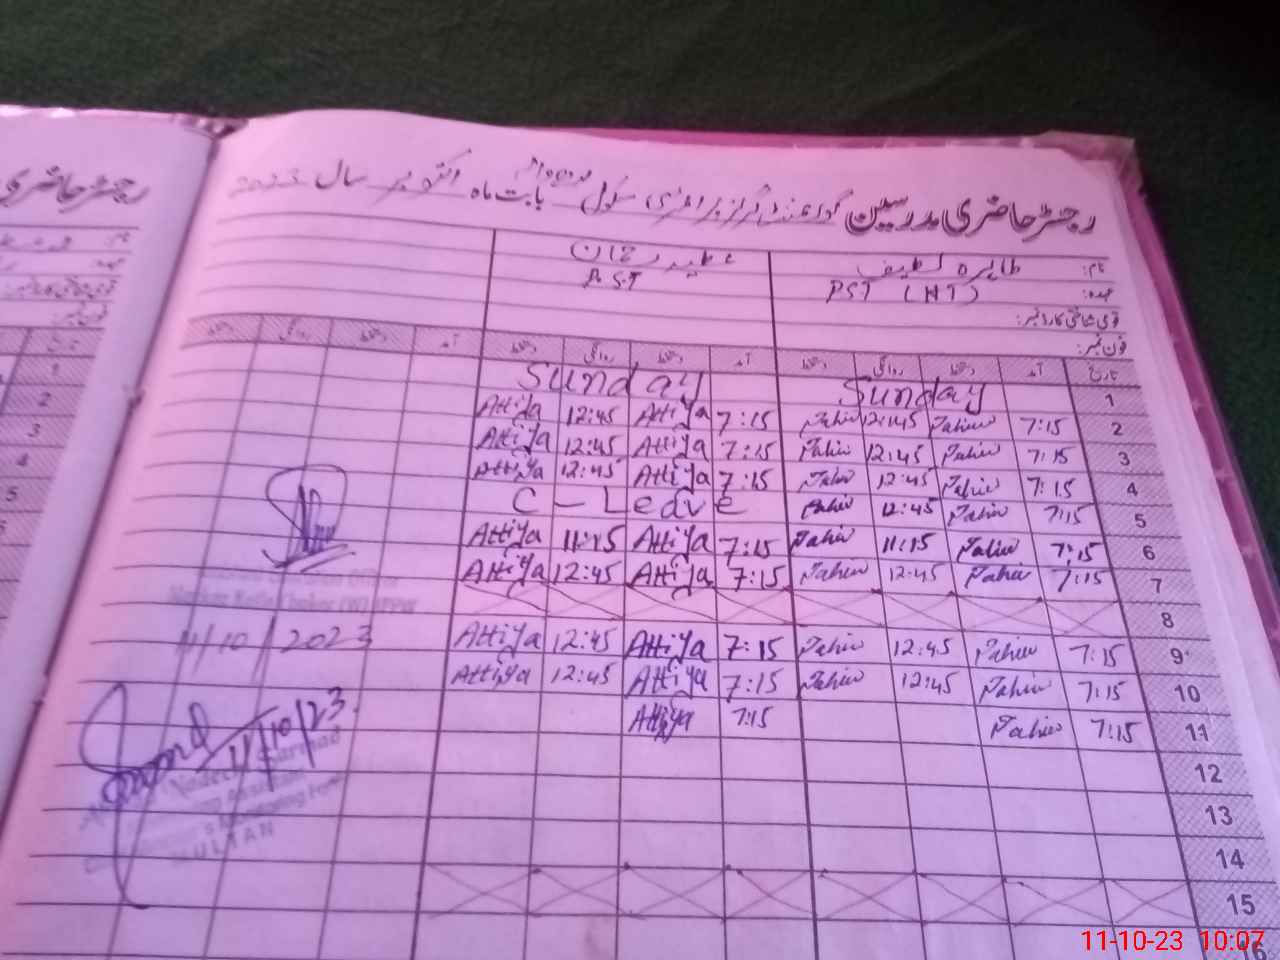 رجسٹر حاضری مدرسین گورنمنٹ گرلز پرائمری سکول بابت ماہ اکتوبر سال 2023
نام: طاہرہ لطیف عطیہ رحمان
عہدہ: PST (HT) P.S.T
قومی شناختی کارڈ نمبر:
فون نمبر:
تاریخ آمد دستخط روانگی دستخط آمد دستخط روانگی دستخط آمد دستخط روانگی دستخط
1 Sunday Sunday
2 7:15 Tahira 12:45 Tahira 7:15 Attiya 12:45 Attiya
3 7:15 Tahira 12:45 Tahira 7:15 Attiya 12:45 Attiya
4 7:15 Tahira 12:45 Tahira 7:15 Attiya 12:45 Attiya
5 7:15 Tahira 12:45 Tahira C - Leave
6 7:15 Tahira 11:15 Tahira 7:15 Attiya 11:15 Attiya
7 7:15 Tahira 12:45 Tahira 7:15 Attiya 12:45 Attiya
8
9 7:15 Tahira 12:45 Tahira 7:15 Attiya 12:45 Attiya
10 7:15 Tahira 12:45 Tahira 7:15 Attiya 12:45 Attiya
11 7:15 Tahira 7:15 Attiya
12
13
14
15
16
Education Officer
11/10/2023
11/10/23
Sarmad
MULTAN
رجسٹر حاضری
نام:
تاریخ
1
2
3
4
5
11-10-23 10:07